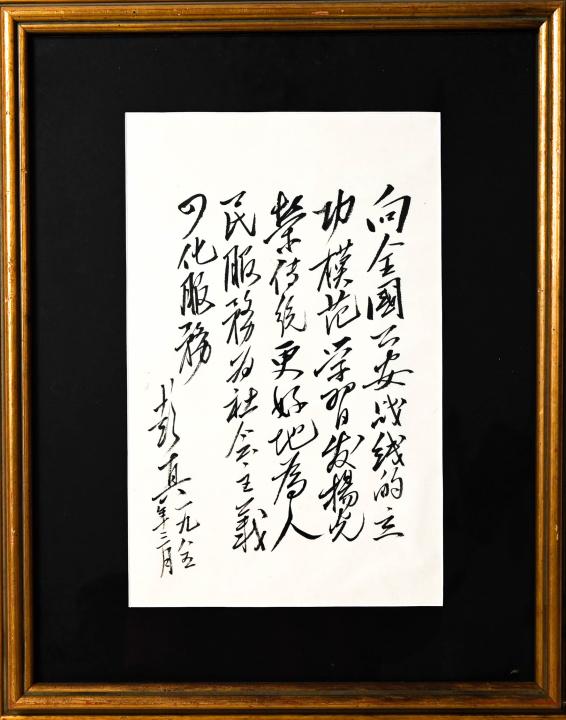 向全國公安战线的立
功模范学習发揚光
荣传统更好地為人
民服務为社会主義
四化服務
彭真一九八五
年三月